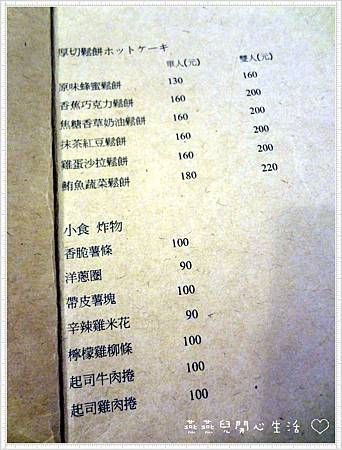 厚切鬆餅ホットケーキ
單人(元) 雙人(元)
原味蜂蜜鬆餅 130 160
香蕉巧克力鬆餅 160 200
焦糖香草奶油鬆餅 160 200
抹茶紅豆鬆餅 160 200
雞蛋沙拉鬆餅 160 200
鮪魚蔬菜鬆餅 180 220
小食 炸物
香脆薯條 100
洋蔥圈 90
帶皮薯塊 100
辛辣雞米花 90
檸檬雞柳條 100
起司牛肉捲 100
起司雞肉捲 100
燕燕兒開心生活♡